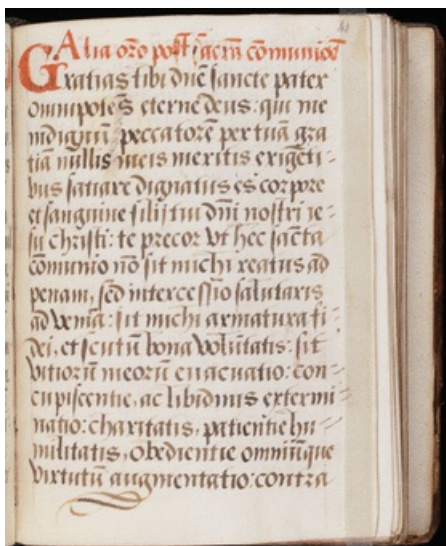 Alia oro̅ post sacra̅ co̅munione̅
Gratias tibi dn̅e sancte pater
omnipote̅s eterne deus: qui me
indignu̅ peccatore̅ per tua̅ gra
tia̅ nullis meis meritis exige̅ti-
bus satiare dignatus es corpore
et sanguine filij tui dn̅i nostri ie-
su christi: te precor vt hec sac̅ta
co̅munio no̅ sit michi reatus ad
penam, sed intercessio salutaris
ad venia̅: sit michi armatura fi-
dei, et scutu̅ bona volu̅tatis: sit
vitioru̅ meoru̅ euacuatio: con-
cupiscentie, ac libidinis extermi-
natio: charitatis, patientie hu-
militatis, obedientie omniu̅que
virtutu̅ augmentatio: contra